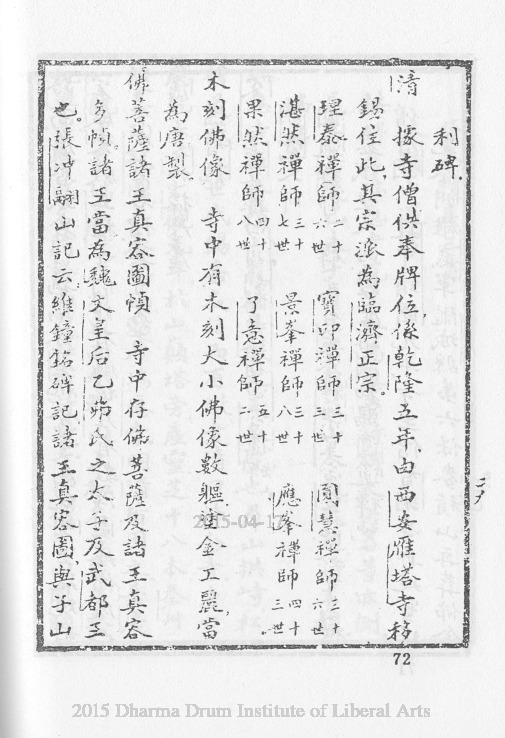 利碑、
清 據寺僧供奉牌位、係乾隆五年、由西安雁塔寺移
錫住此、其宗派為臨濟正宗。
理泰禪師二十六世 寶印禪師三十三世 圓慧禪師三十六世
湛然禪師三十七世 景峯禪師三十八世 應峯禪師四十三世。
果然禪師四十八世 了意禪師五十二世
木刻佛像 寺中有木刻大小佛像數軀塗金工麗、當
為唐製。
佛菩薩諸王真容圖幀 寺中存佛菩薩及諸王真容
多幀。諸王當為魏文皇后乙弗氏之太子及武都王
也。張冲翮山記云維鐘銘碑記諸王真容圖、與子山
二八
72
2015-04-17
2015 Dharma Drum Institute of Liberal Arts